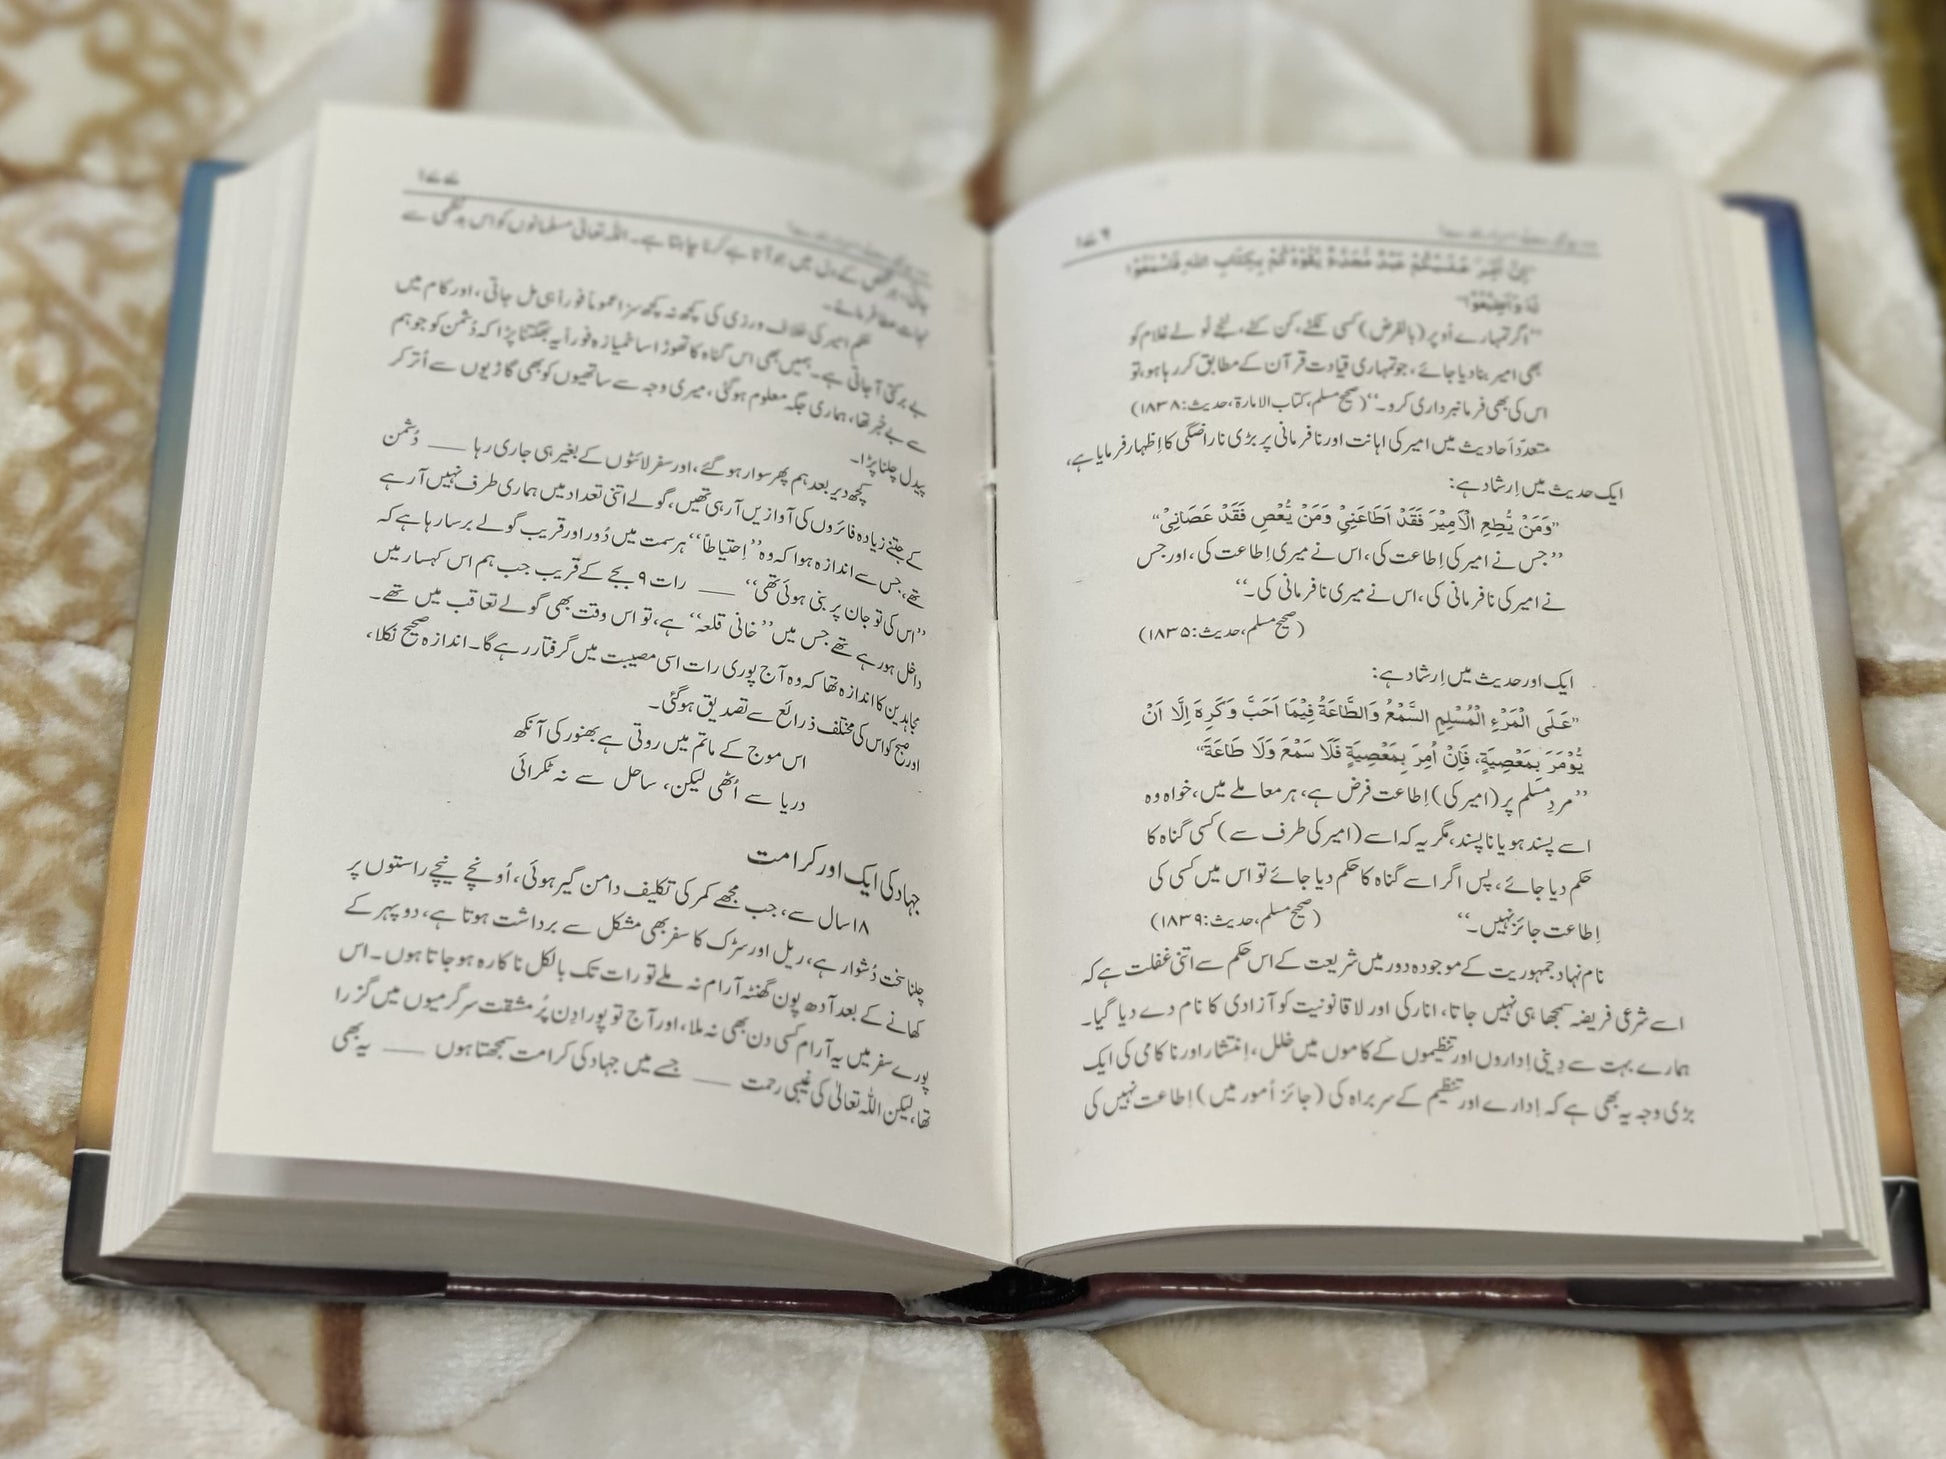 ۱۷۶
اِنْ اُمِّرَ عَلَيْكُمْ عَبْدٌ مُجَدَّعٌ يَّقُوْدُكُمْ بِكِتَابِ اللهِ فَاسْمَعُوْا
لَهٗ وَاَطِيْعُوْا“
”اگر تمہارے اُوپر (بالفرض) کسی نکٹے، کن کٹے، لنجے لُولے غلام کو
بھی امیر بنا دیا جائے، جو تمہاری قیادت قرآن کے مطابق کر رہا ہو، تو
اس کی بھی فرمانبرداری کرو۔“ (صحیح مسلم، کتاب الامارۃ، حدیث: ۱۸۳۸)
متعدّد اَحادیث میں امیر کی اہانت اور نافرمانی پر بڑی ناراضگی کا اِظہار فرمایا ہے،
ایک حدیث میں اِرشاد ہے:
”وَمَنْ يُّطِعِ الْاَمِيْرَ فَقَدْ اَطَاعَنِيْ وَمَنْ يَّعْصِ فَقَدْ عَصَانِيْ“
”جس نے امیر کی اِطاعت کی، اس نے میری اِطاعت کی، اور جس
نے امیر کی نافرمانی کی، اس نے میری نافرمانی کی۔“
(صحیح مسلم، حدیث: ۱۸۳۵)
ایک اور حدیث میں اِرشاد ہے:
”عَلَى الْمَرْءِ الْمُسْلِمِ السَّمْعُ وَالطَّاعَةُ فِيْمَا اَحَبَّ وَكَرِهَ اِلَّا اَنْ
يُّؤْمَرَ بِمَعْصِيَةٍ، فَاِنْ اُمِرَ بِمَعْصِيَةٍ فَلَا سَمْعَ وَلَا طَاعَةَ“
”مردِ مسلم پر (امیر کی) اِطاعت فرض ہے، ہر معاملے میں، خواہ وہ
اسے پسند ہو یا ناپسند، مگر یہ کہ اسے (امیر کی طرف سے) کسی گناہ کا
حکم دیا جائے، پس اگر اسے گناہ کا حکم دیا جائے تو اس میں کسی کی
اِطاعت جائز نہیں۔“ (صحیح مسلم، حدیث: ۱۸۳۹)
نام نہاد جمہوریت کے موجودہ دور میں شریعت کے اس حکم سے اتنی غفلت ہے کہ
اسے شرعی فریضہ سمجھا ہی نہیں جاتا، انارکی اور لاقانونیت کو آزادی کا نام دے دیا گیا۔
ہمارے بہت سے دِینی اِداروں اور تنظیموں کے کاموں میں خلل، اِنتشار اور ناکامی کی ایک
بڑی وجہ یہ بھی ہے کہ اِدارے اور تنظیم کے سربراہ کی (جائز اُمور میں) اِطاعت نہیں کی
۱۷۷
جاتی، ہر شخص کے دل میں جو آتا ہے کرنا چاہتا ہے۔ اللہ تعالیٰ مسلمانوں کو اس بدنظمی سے
نجات عطا فرمائے۔
حکمِ امیر کی خلاف ورزی کی کچھ نہ کچھ سزا عموماً فوراً ہی مل جاتی، اور کام میں
بے برکتی آ جاتی ہے۔ ہمیں بھی اس گناہ کا تھوڑا سا خمیازہ فوراً یہ بھگتنا پڑا کہ دُشمن کو جو ہم
سے بے خبر تھا، ہماری جگہ معلوم ہوگئی، میری وجہ سے ساتھیوں کو بھی گاڑیوں سے اُتر کر
پیدل چلنا پڑا۔
کچھ دیر بعد ہم پھر سوار ہوگئے، اور سفر لائٹوں کے بغیر ہی جاری رہا ـــــ دُشمن
کے جتنے زیادہ فائروں کی آوازیں آ رہی تھیں، گولے اتنی تعداد میں ہماری طرف نہیں آ رہے
تھے، جس سے اندازہ ہوا کہ وہ ”اِحتیاطاً“ ہر سمت میں دُور اور قریب گولے برسا رہا ہے کہ
”اس کی تو جان پر بنی ہوئی تھی“ ـــــ رات ۹ بجے کے قریب جب ہم اس کہسار میں
داخل ہو رہے تھے جس میں ”خانی قلعہ“ ہے، تو اس وقت بھی گولے تعاقب میں تھے۔
مجاہدین کا اندازہ تھا کہ وہ آج پوری رات اسی مصیبت میں گرفتار رہے گا۔ اندازہ صحیح نکلا،
اور صبح کو اس کی مختلف ذرائع سے تصدیق ہوگئی۔
اس موج کے ماتم میں روتی ہے بھنور کی آنکھ
دریا سے اُٹھی لیکن، ساحل سے نہ ٹکرائی
جہاد کی ایک اور کرامت
۱۸ سال سے، جب مجھے کمر کی تکلیف دامن گیر ہوئی، اُونچے نیچے راستوں پر
چلنا سخت دُشوار ہے، ریل اور سڑک کا سفر بھی مشکل سے برداشت ہوتا ہے، دوپہر کے
کھانے کے بعد آدھ پون گھنٹہ آرام نہ ملے تو رات تک بالکل ناکارہ ہو جاتا ہوں۔ اس
پورے سفر میں یہ آرام کسی دن بھی نہ ملا، اور آج تو پورا دِن پُر مشقت سرگرمیوں میں گزرا
تھا، لیکن اللہ تعالیٰ کی غیبی رحمت ـــــ جسے میں جہاد کی کرامت سمجھتا ہوں ـــــ یہ بھی